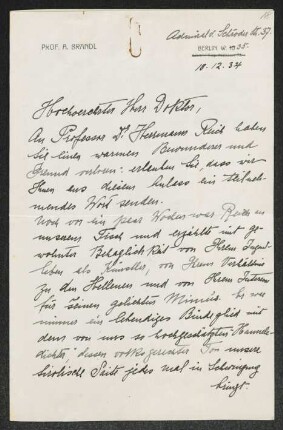 PROF. A. BRANDL
BERLIN W. 35.
10. 12. 34
Hochverehrter Herr Doktor,
An Professor Dr. Hermann Reich haben
Sie einen warmen Bewunderer und
Freund verloren: erlauben Sie, dass wir
Ihnen aus diesem Anlass ein teilneh-
mendes Wort senden.
Noch vor ein paar Wochen war Reich an
unserem Tisch und erzählte mit ge-
wohnter Behaglichkeit von Ihrem Jugend-
leben als Künstler, von Ihrem Verhältnis
zu den Hellenen und von Ihrem Interesse
für seinen geliebten Mimus. Es war
immer ein lebendiges Bindeglied mit
dem von uns so hochgeschätzten
dichter, dessen Ton unsere
tirolische Saite jedes mal in Schwingung
bringt.